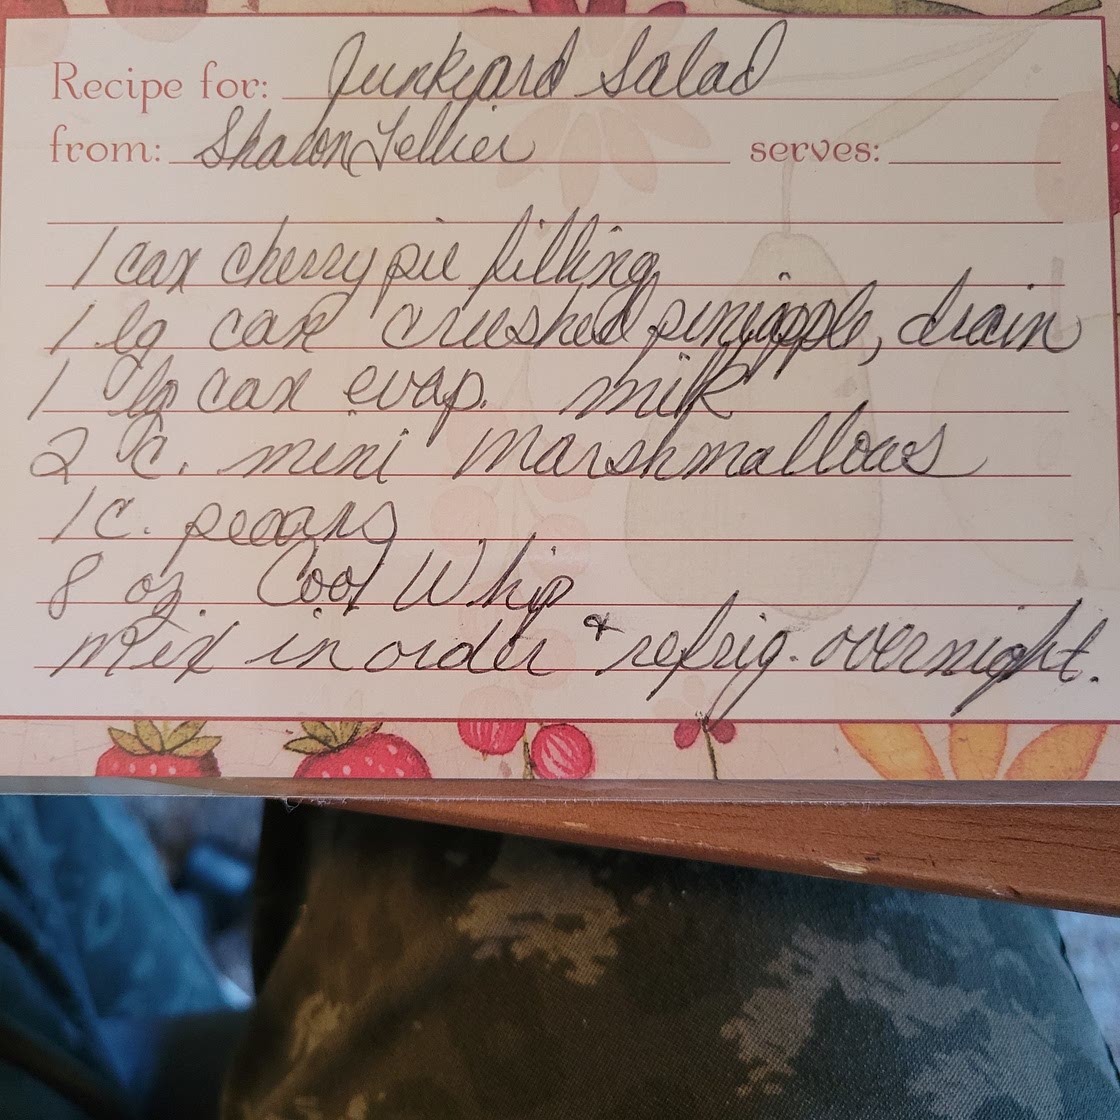 Recipe for: Junkyard Salad
from: Sharon Tellier serves:
1 can cherry pie filling
1 lg can crushed pineapple, drain
1 lg can evap. milk
2 C. mini marshmallows
1 C. pecans
8 oz. Cool Whip
Mix in order & refrig. overnight.